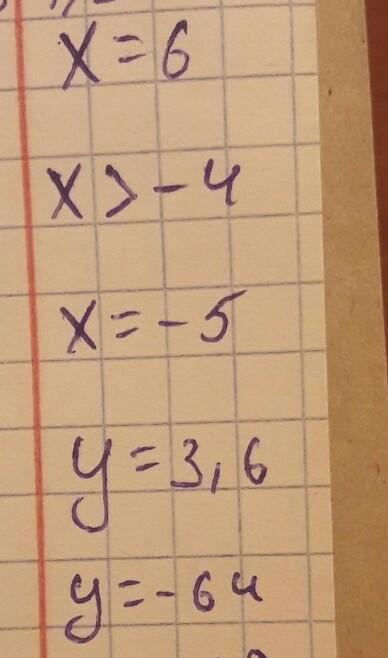 x = 6
x > - 4
x = - 5
y = 3,6
y = - 64